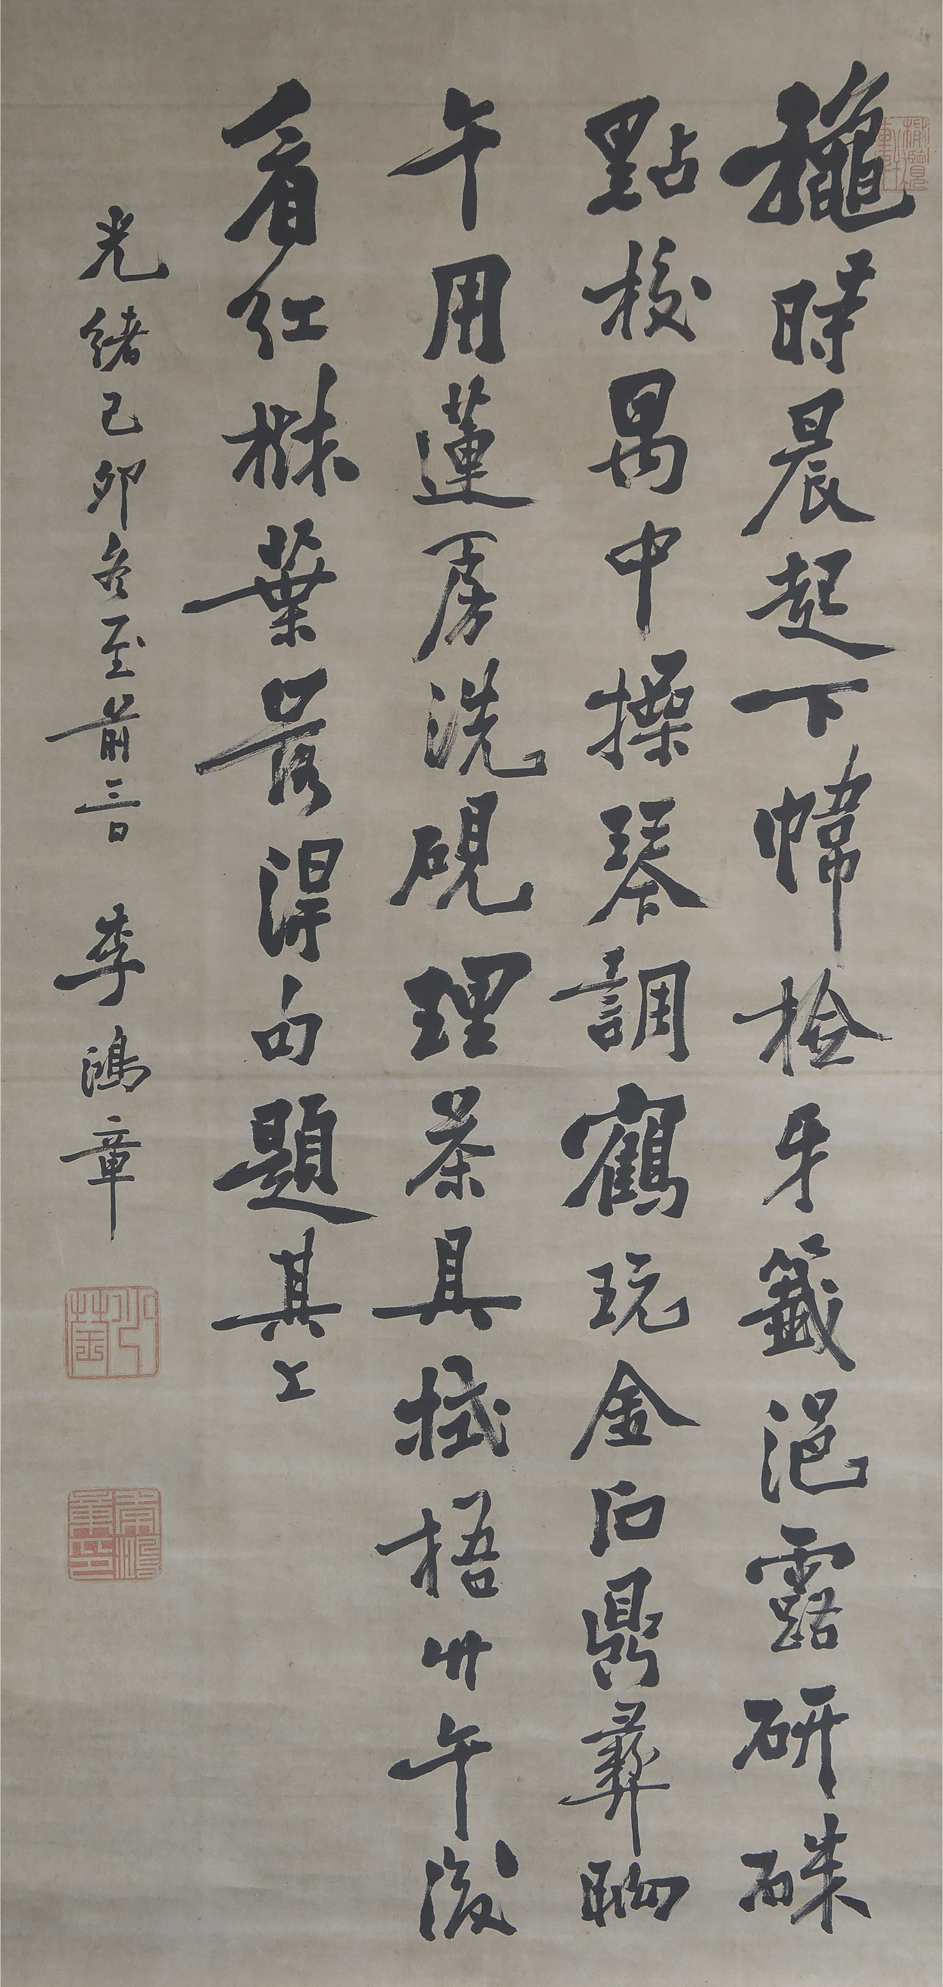 龝時晨起下幃檢牙籤浥露研硃
點校禺中操琴調鶴玩金石鼎彝晌
午用蓮房洗硯理茶具拭梧竹午後
看紅樹葉落得句題其上
光緒己卯冬至前三日 李鴻章
少荃
李鴻章印